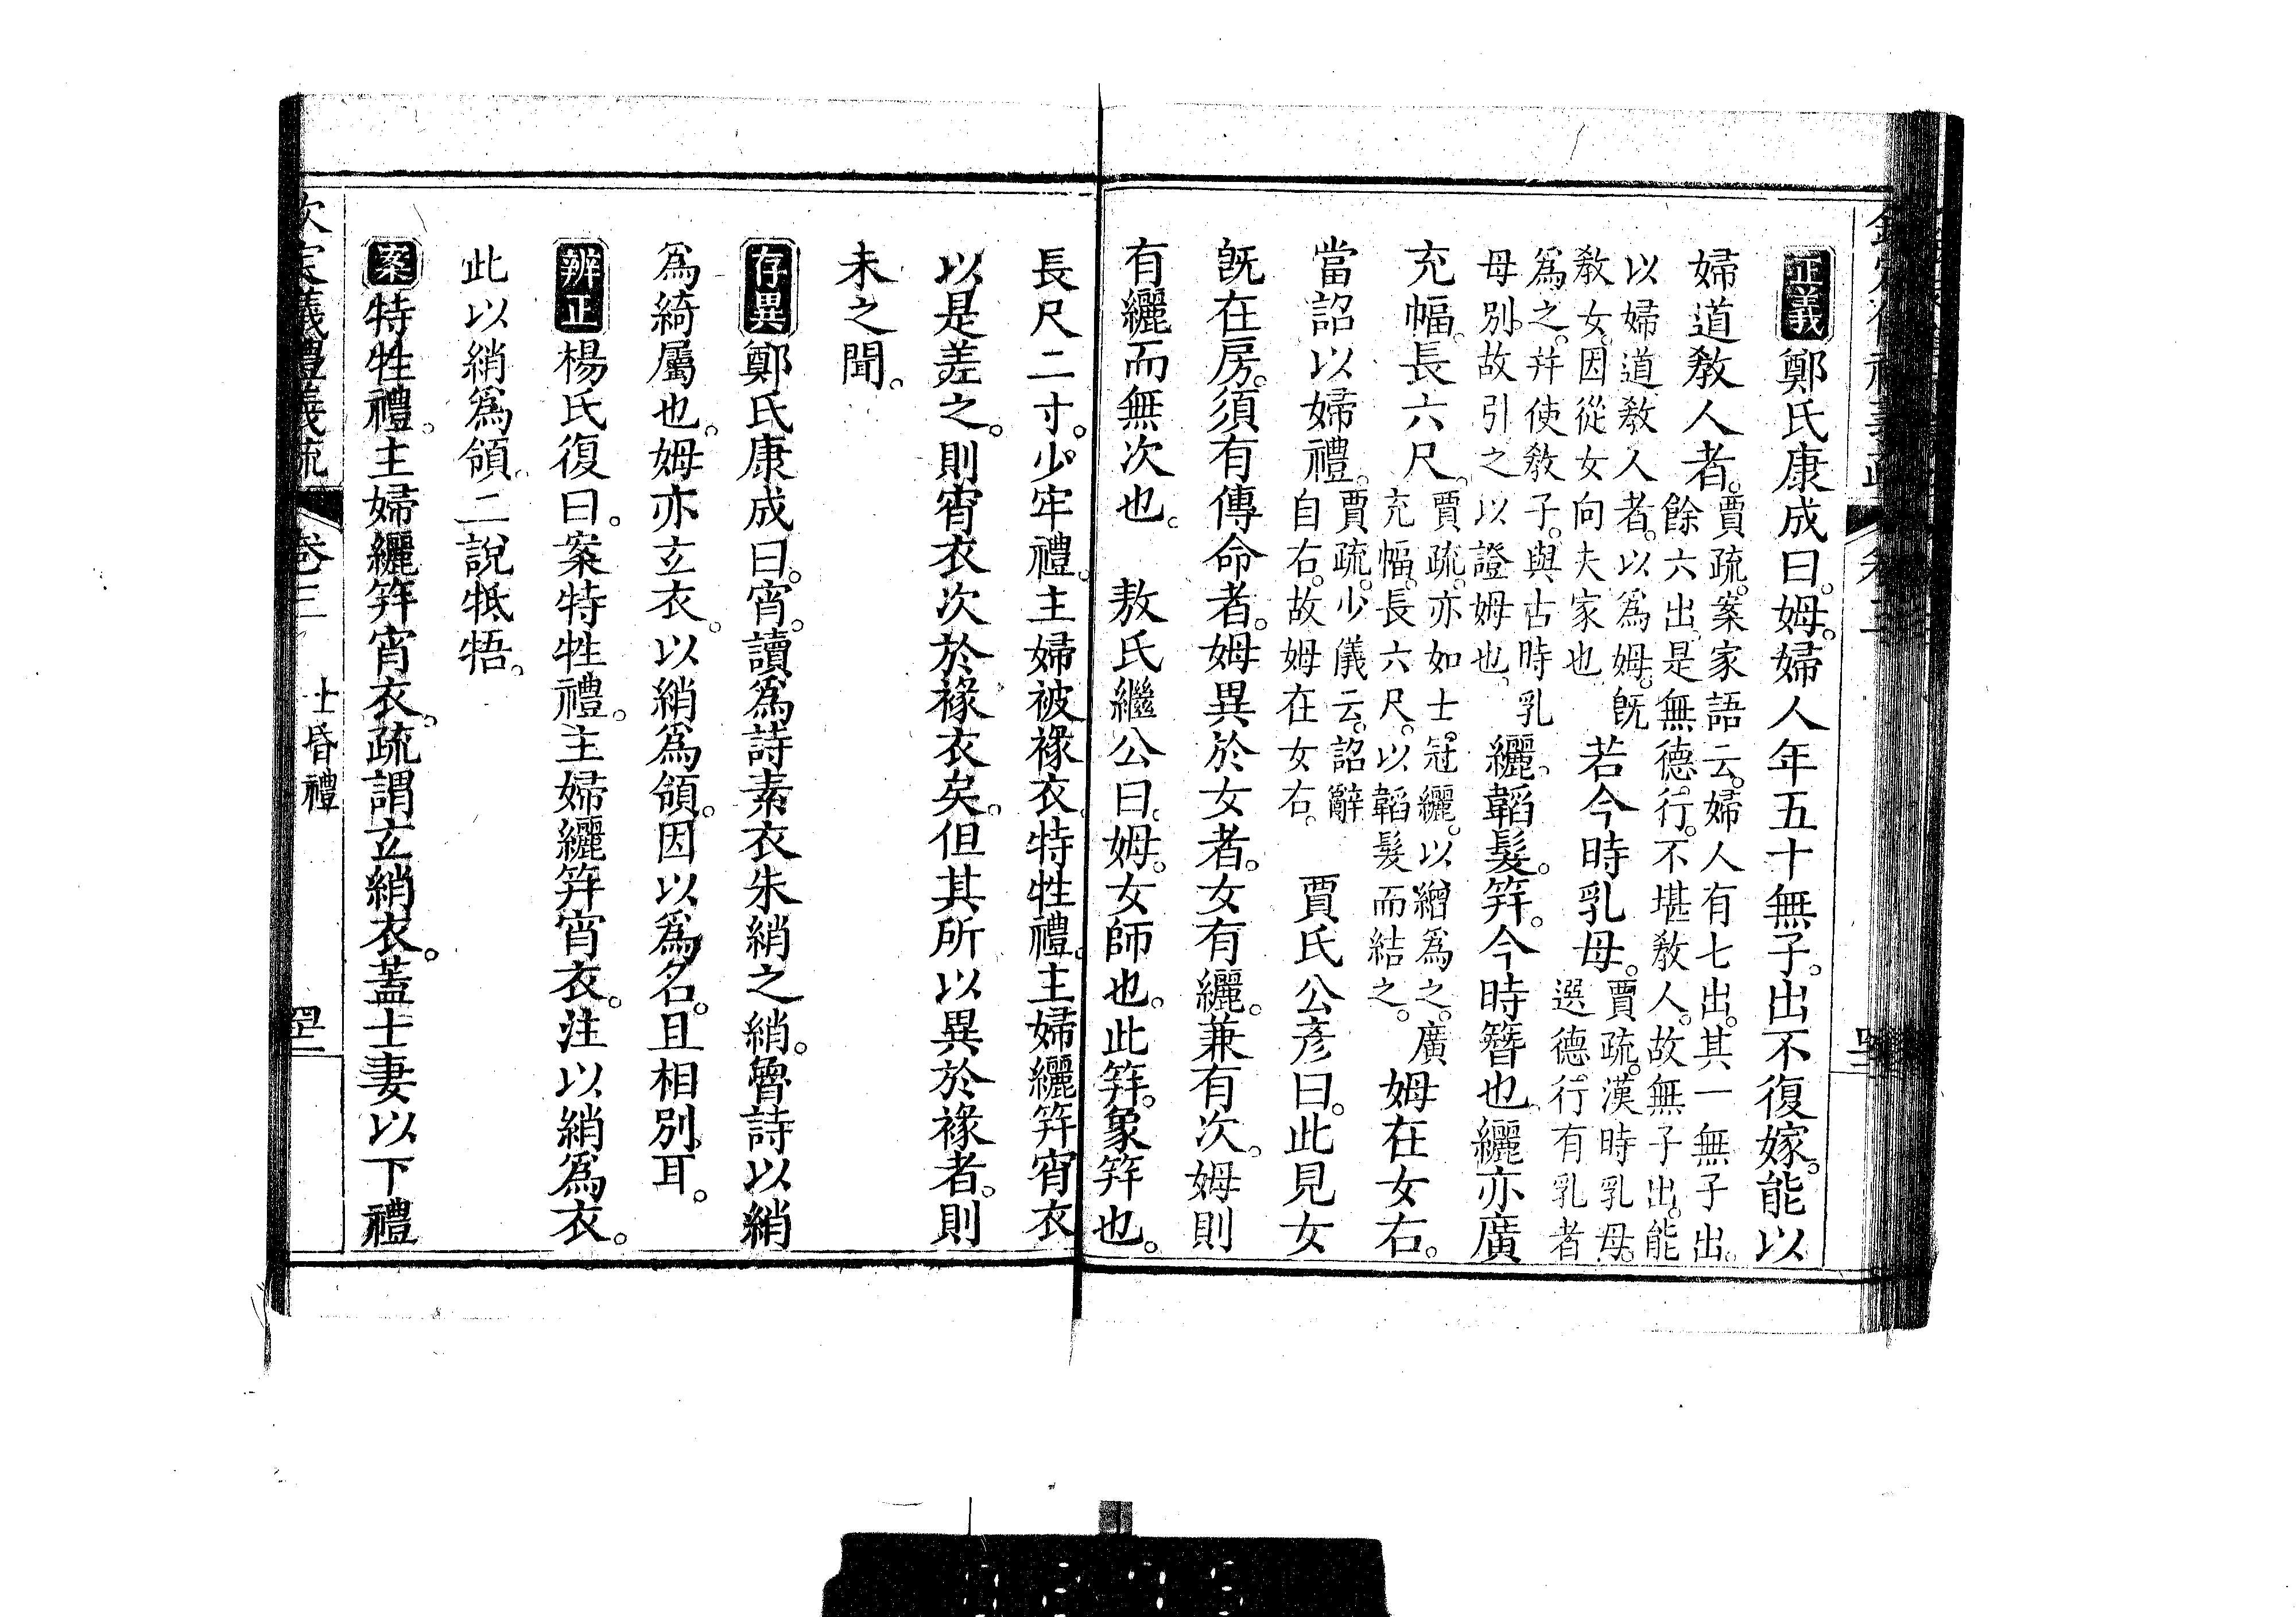 正義鄭氏康成曰。姆。婦人年五十無子。出不復嫁。能以
婦道教人者。賈疏。案家語云。婦人有七出。其一無子出。餘六出。是無德行。不堪教人。故無子出。能
以婦道教人者。以爲姆。既教女。因從女向夫家也若今時乳母。賈疏。漢時乳母。選德行有乳者
爲之。幷使教子。與古時乳母別。故引之以證姆也。纚。韜髮。笄。今時簪也。纚亦廣
充幅。長六尺。賈疏。亦如士冠纚。以繒爲之。廣充幅。長六尺。以韜髮而結之。姆在女右。
當詔以婦禮。賈疏。少儀云。詔辭自右。故姆在女右。賈氏公彥曰。此見女
旣在房。須有傳命者。姆異於女者。女有纚。兼有次。姆則
有纚而無次也。 敖氏繼公曰。姆。女師也。此笄。象笄也。
長尺二寸。少牢禮。主婦被褖衣。特牲禮。主婦纚笄宵衣
以是差之。則宵衣次於褖衣矣。但其所以異於褖者。則
未之聞。
存異鄭氏康成曰。宵。讀爲詩素衣朱綃之綃。魯詩以綃
爲綺屬也。姆亦玄衣。以綃爲領。因以爲名。且相別耳。
辨正楊氏復曰。案特牲禮。主婦纚笄宵衣。注以綃爲衣。
此以綃爲領。二說牴牾。
案特牲禮。主婦纚笄宵衣。疏謂玄綃衣。蓋士妻以下禮
儀禮義疏 卷三 士昏禮